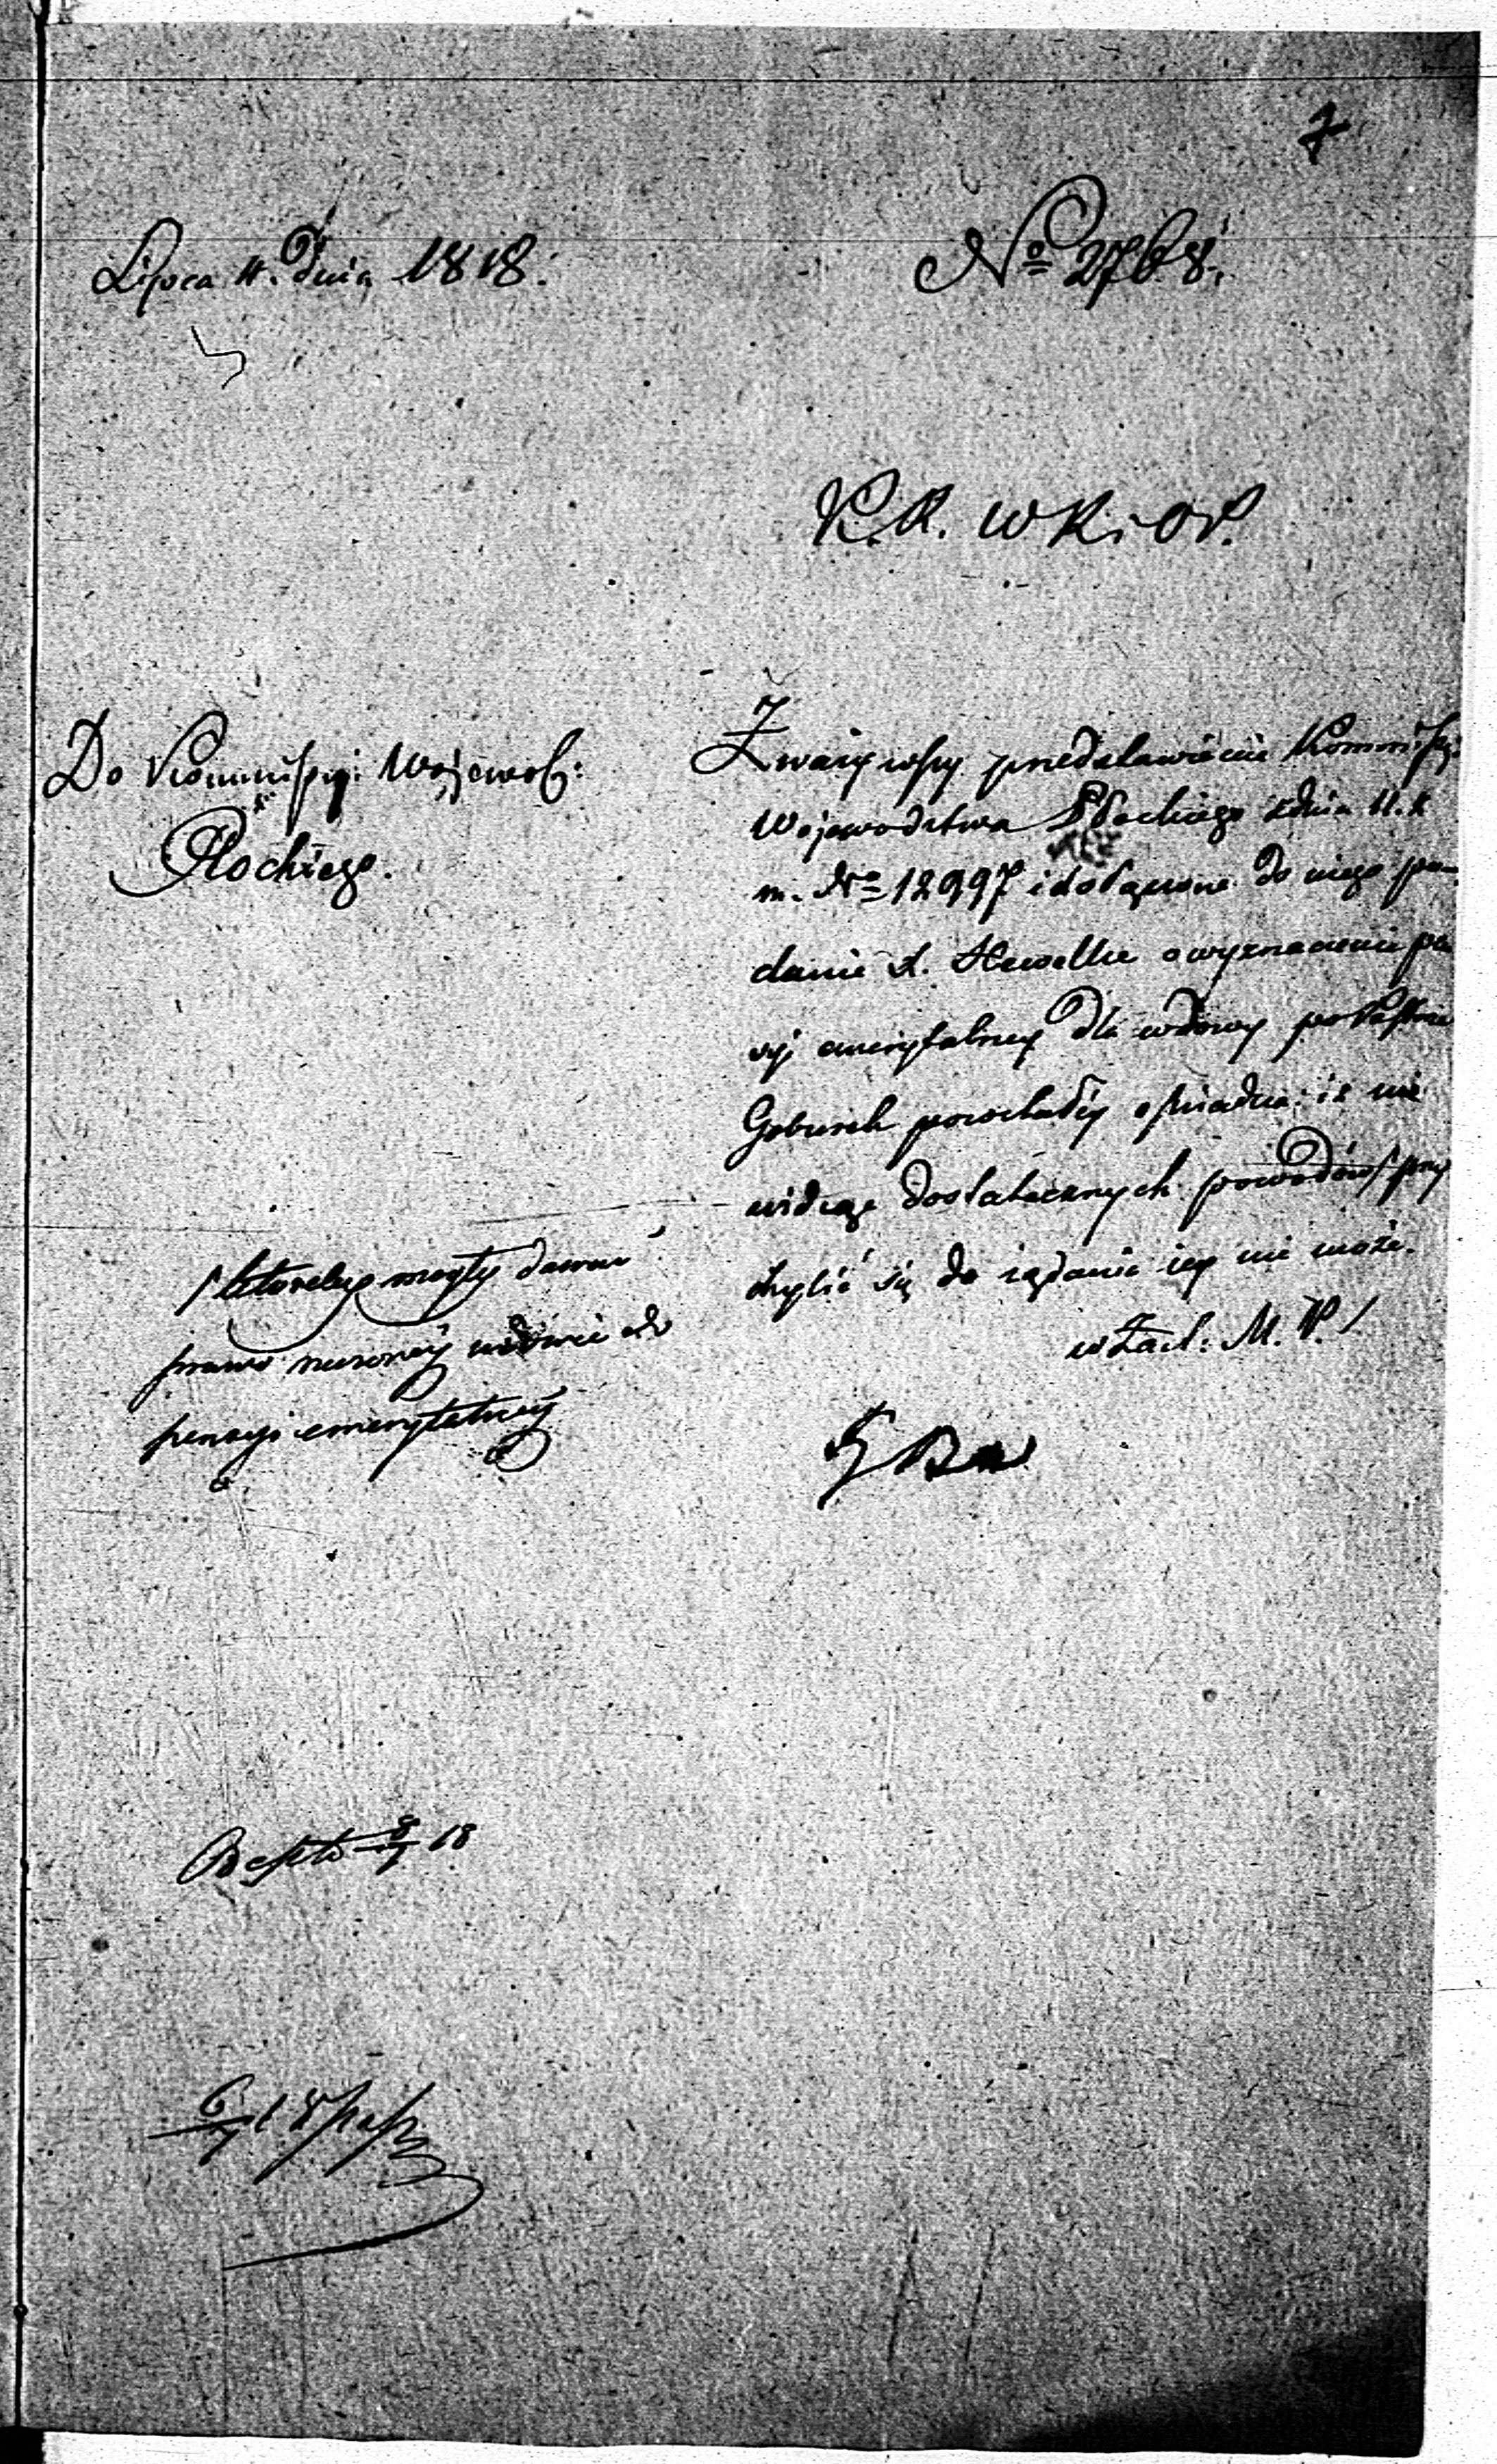 7
Lipca 4. dnia 1818.
No 2768.
K.R. W R. i O P.
Do Kommissyi Wojewodz:
Płockiego.
Zważywszy przedstawienie Kommissyi
Województwa Płockiego z dnia 11. z
m. No 12997 i dołączone do niego po-
danie X. Hewelke o wyznaczenie pen
syi emerytalney dla wdowy po Pastorze
Goburek pozostałey oświadcza: iż nie
widząc dostatecznych powodów / przy
chylić się do żądania iey nie może.
w Zast: M. P. /
/ któreby mogły dawać
prawo rzeczoney wdowie do
pensyi emerytalney
18